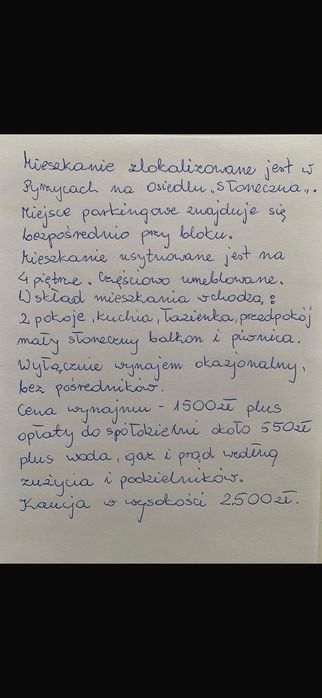 Mieszkanie zlokalizowane jest w
Pyrzycach na osiedlu „Słoneczna".
Miejsce parkingowe znajduje się
bezpośrednio przy bloku.
Mieszkanie usytuowane jest na
4 piętrze. Częściowo umeblowane.
W skład mieszkania wchodzą:
2 pokoje, kuchnia, łazienka, przedpokój
mały słoneczny balkon i piwnica.
Wyłącznie wynajem okazjonalny,
bez pośredników.
Cena wynajmu - 1500zł plus
opłaty do spółdzielni około 550zł
plus woda, gaz i prąd według
zużycia i podzielników.
Kaucja w wysokości 2500zł.